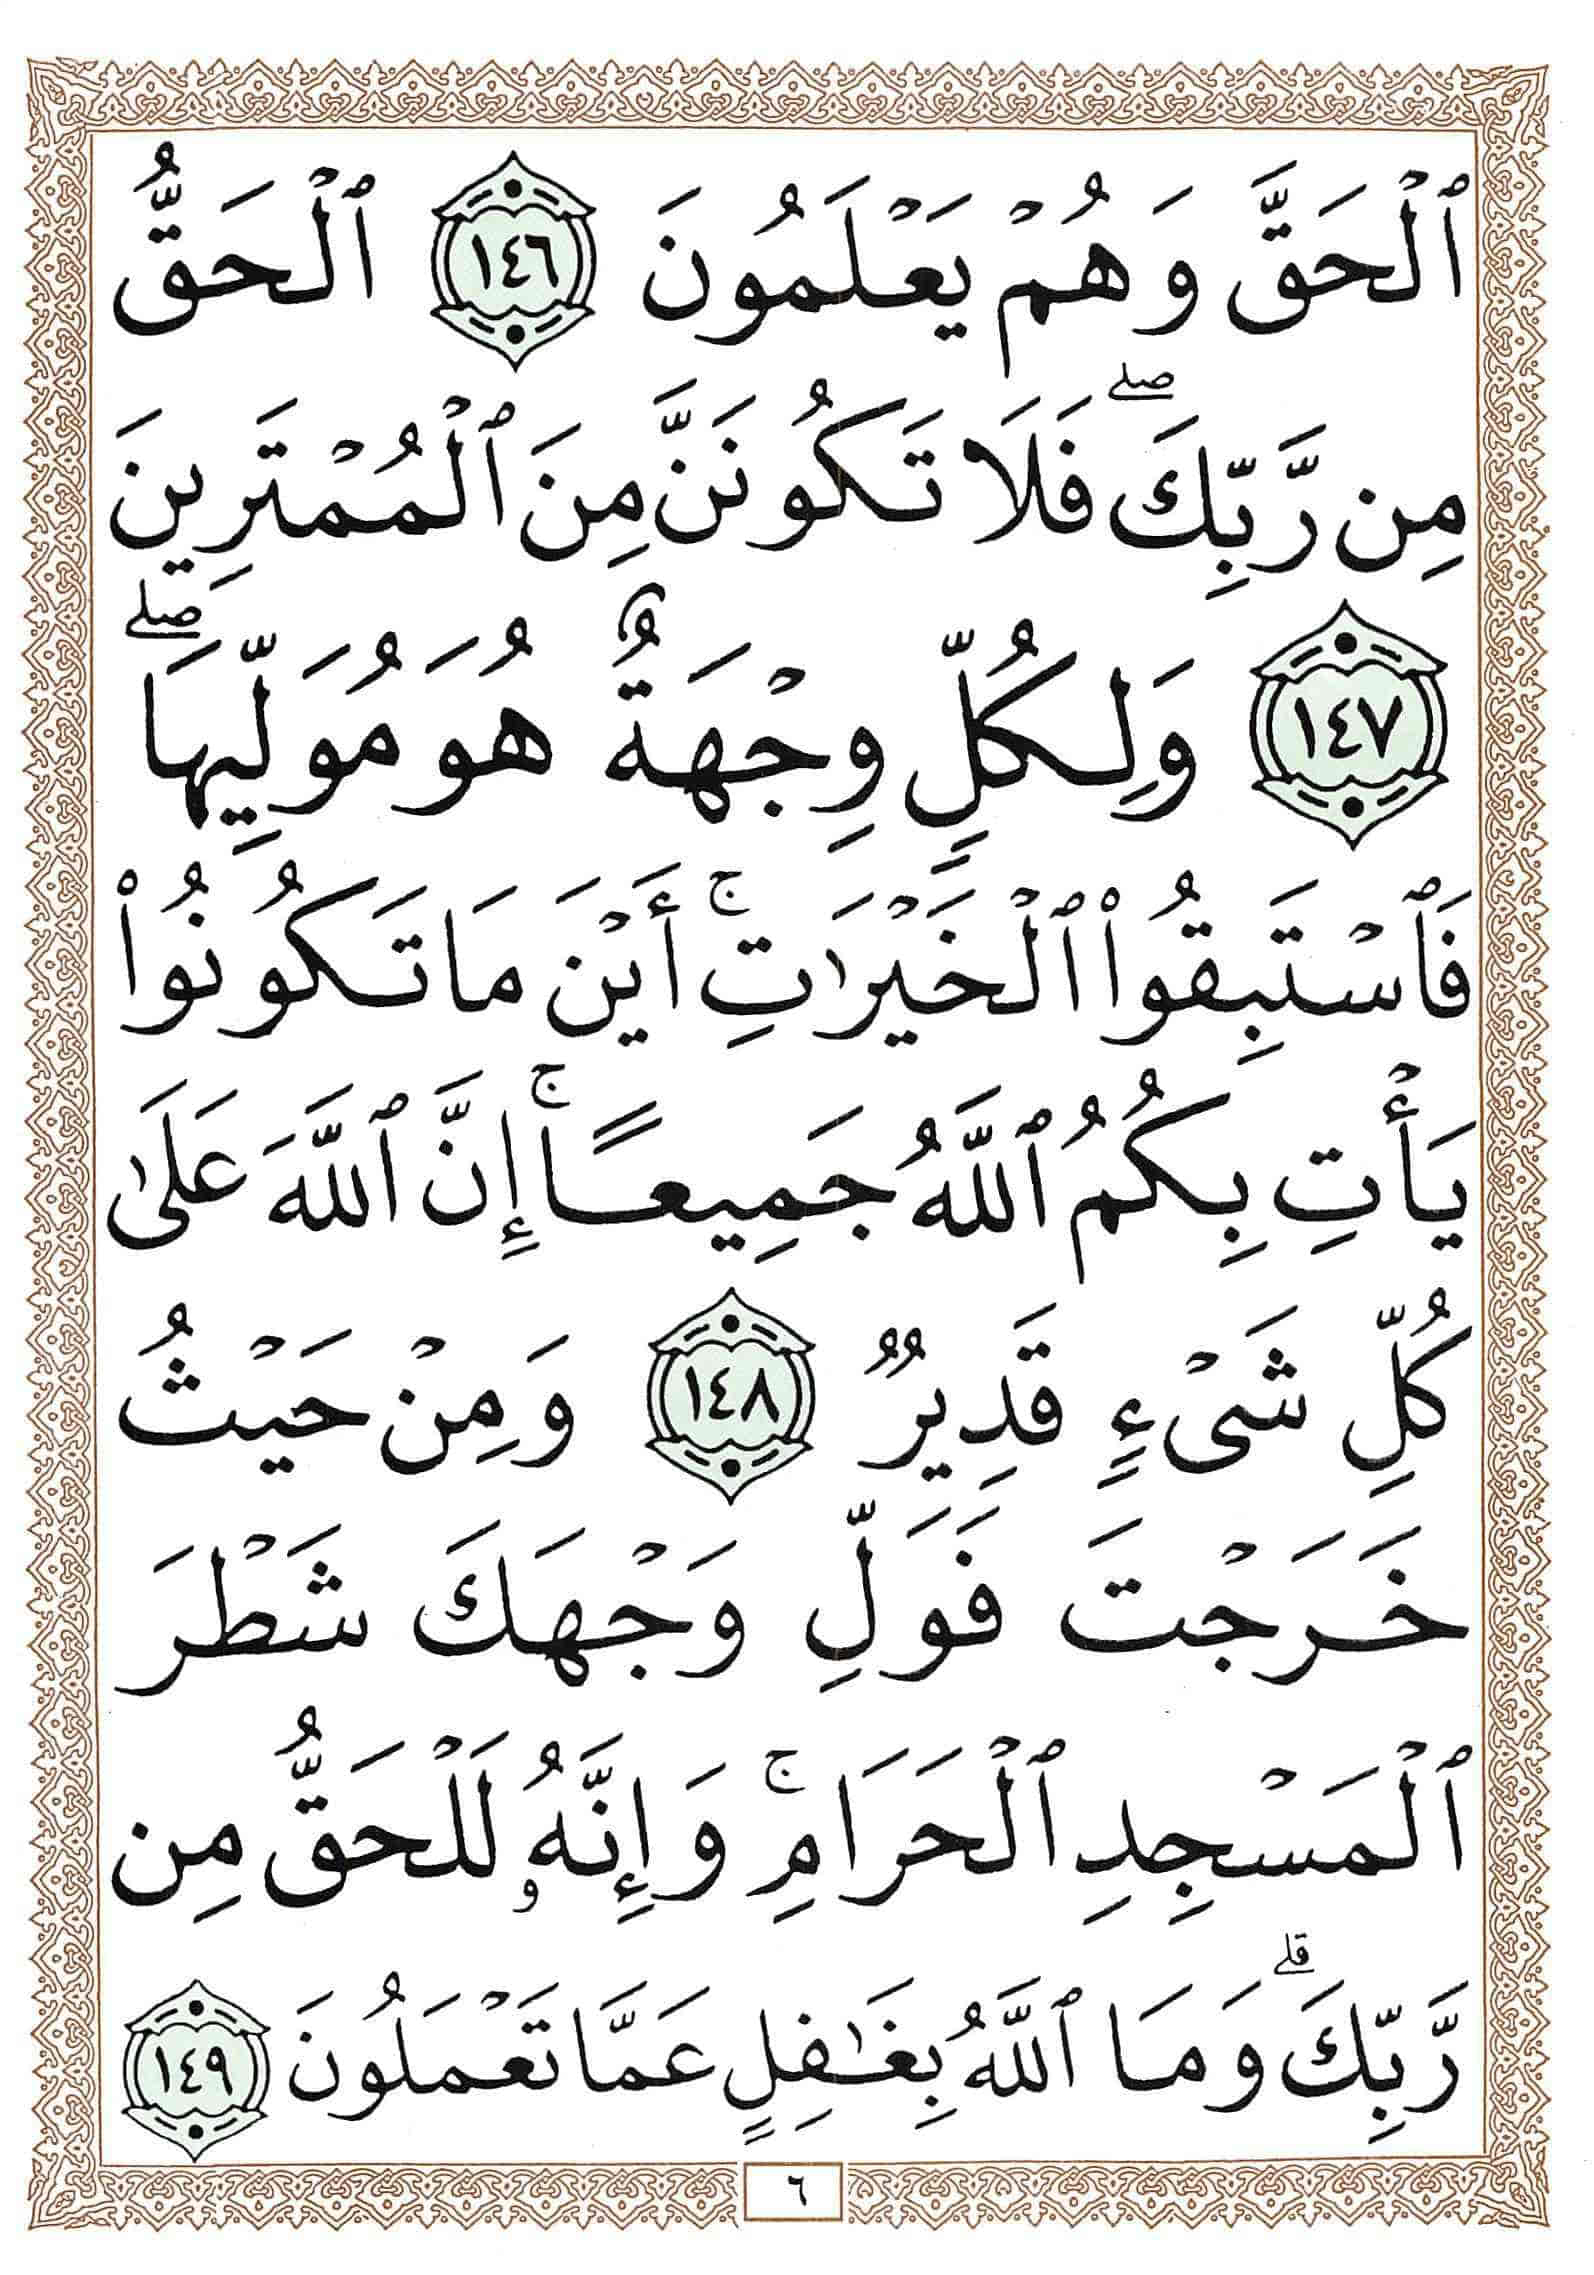 ٱلْحَقَّ وَهُمْ يَعْلَمُونَ ١٤٦ ٱلْحَقُّ
مِن رَّبِّكَ ۖ فَلَا تَكُونَنَّ مِنَ ٱلْمُمْتَرِينَ
١٤٧ وَلِكُلٍّ وِجْهَةٌ هُوَ مُوَلِّيهَا ۖ
فَٱسْتَبِقُوا۟ ٱلْخَيْرَٰتِ ۚ أَيْنَ مَا تَكُونُوا۟
يَأْتِ بِكُمُ ٱللَّهُ جَمِيعًا ۚ إِنَّ ٱللَّهَ عَلَىٰ
كُلِّ شَىْءٍ قَدِيرٌ ١٤٨ وَمِنْ حَيْثُ
خَرَجْتَ فَوَلِّ وَجْهَكَ شَطْرَ
ٱلْمَسْجِدِ ٱلْحَرَامِ ۚ وَإِنَّهُۥ لَلْحَقُّ مِن
رَّبِّكَ ۗ وَمَا ٱللَّهُ بِغَٰفِلٍ عَمَّا تَعْمَلُونَ ١٤٩
٦